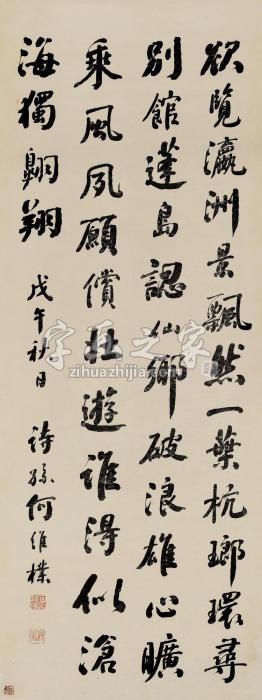 欲覽瀛洲景飄然一葉杭瑯環尋
別館蓬島認仙鄉破浪雄心曠
乘風夙願償壯遊誰得似滄
海獨翺翔
戊午秋日 詩孫何維樸
字画之家
zihuazhijia.com